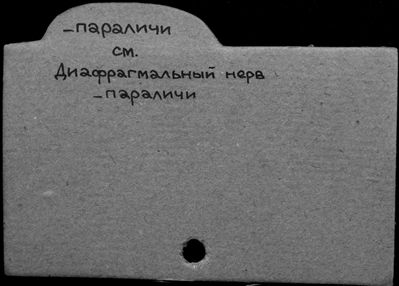 –параличи
см.
Диафрагмальный нерв
–параличи